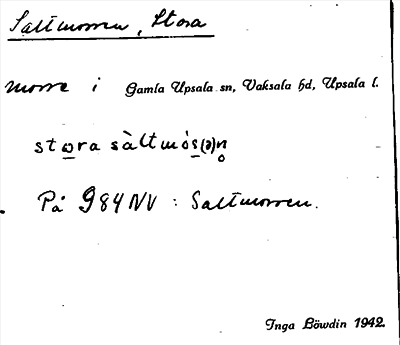 Saltmorren, Stora
morre i Gamla Upsala sn, Vaksala hd, Upsala l.
stora sàltmós(ə)n
På 984 NV : Saltmorren.
Inga Löwdin 1942.